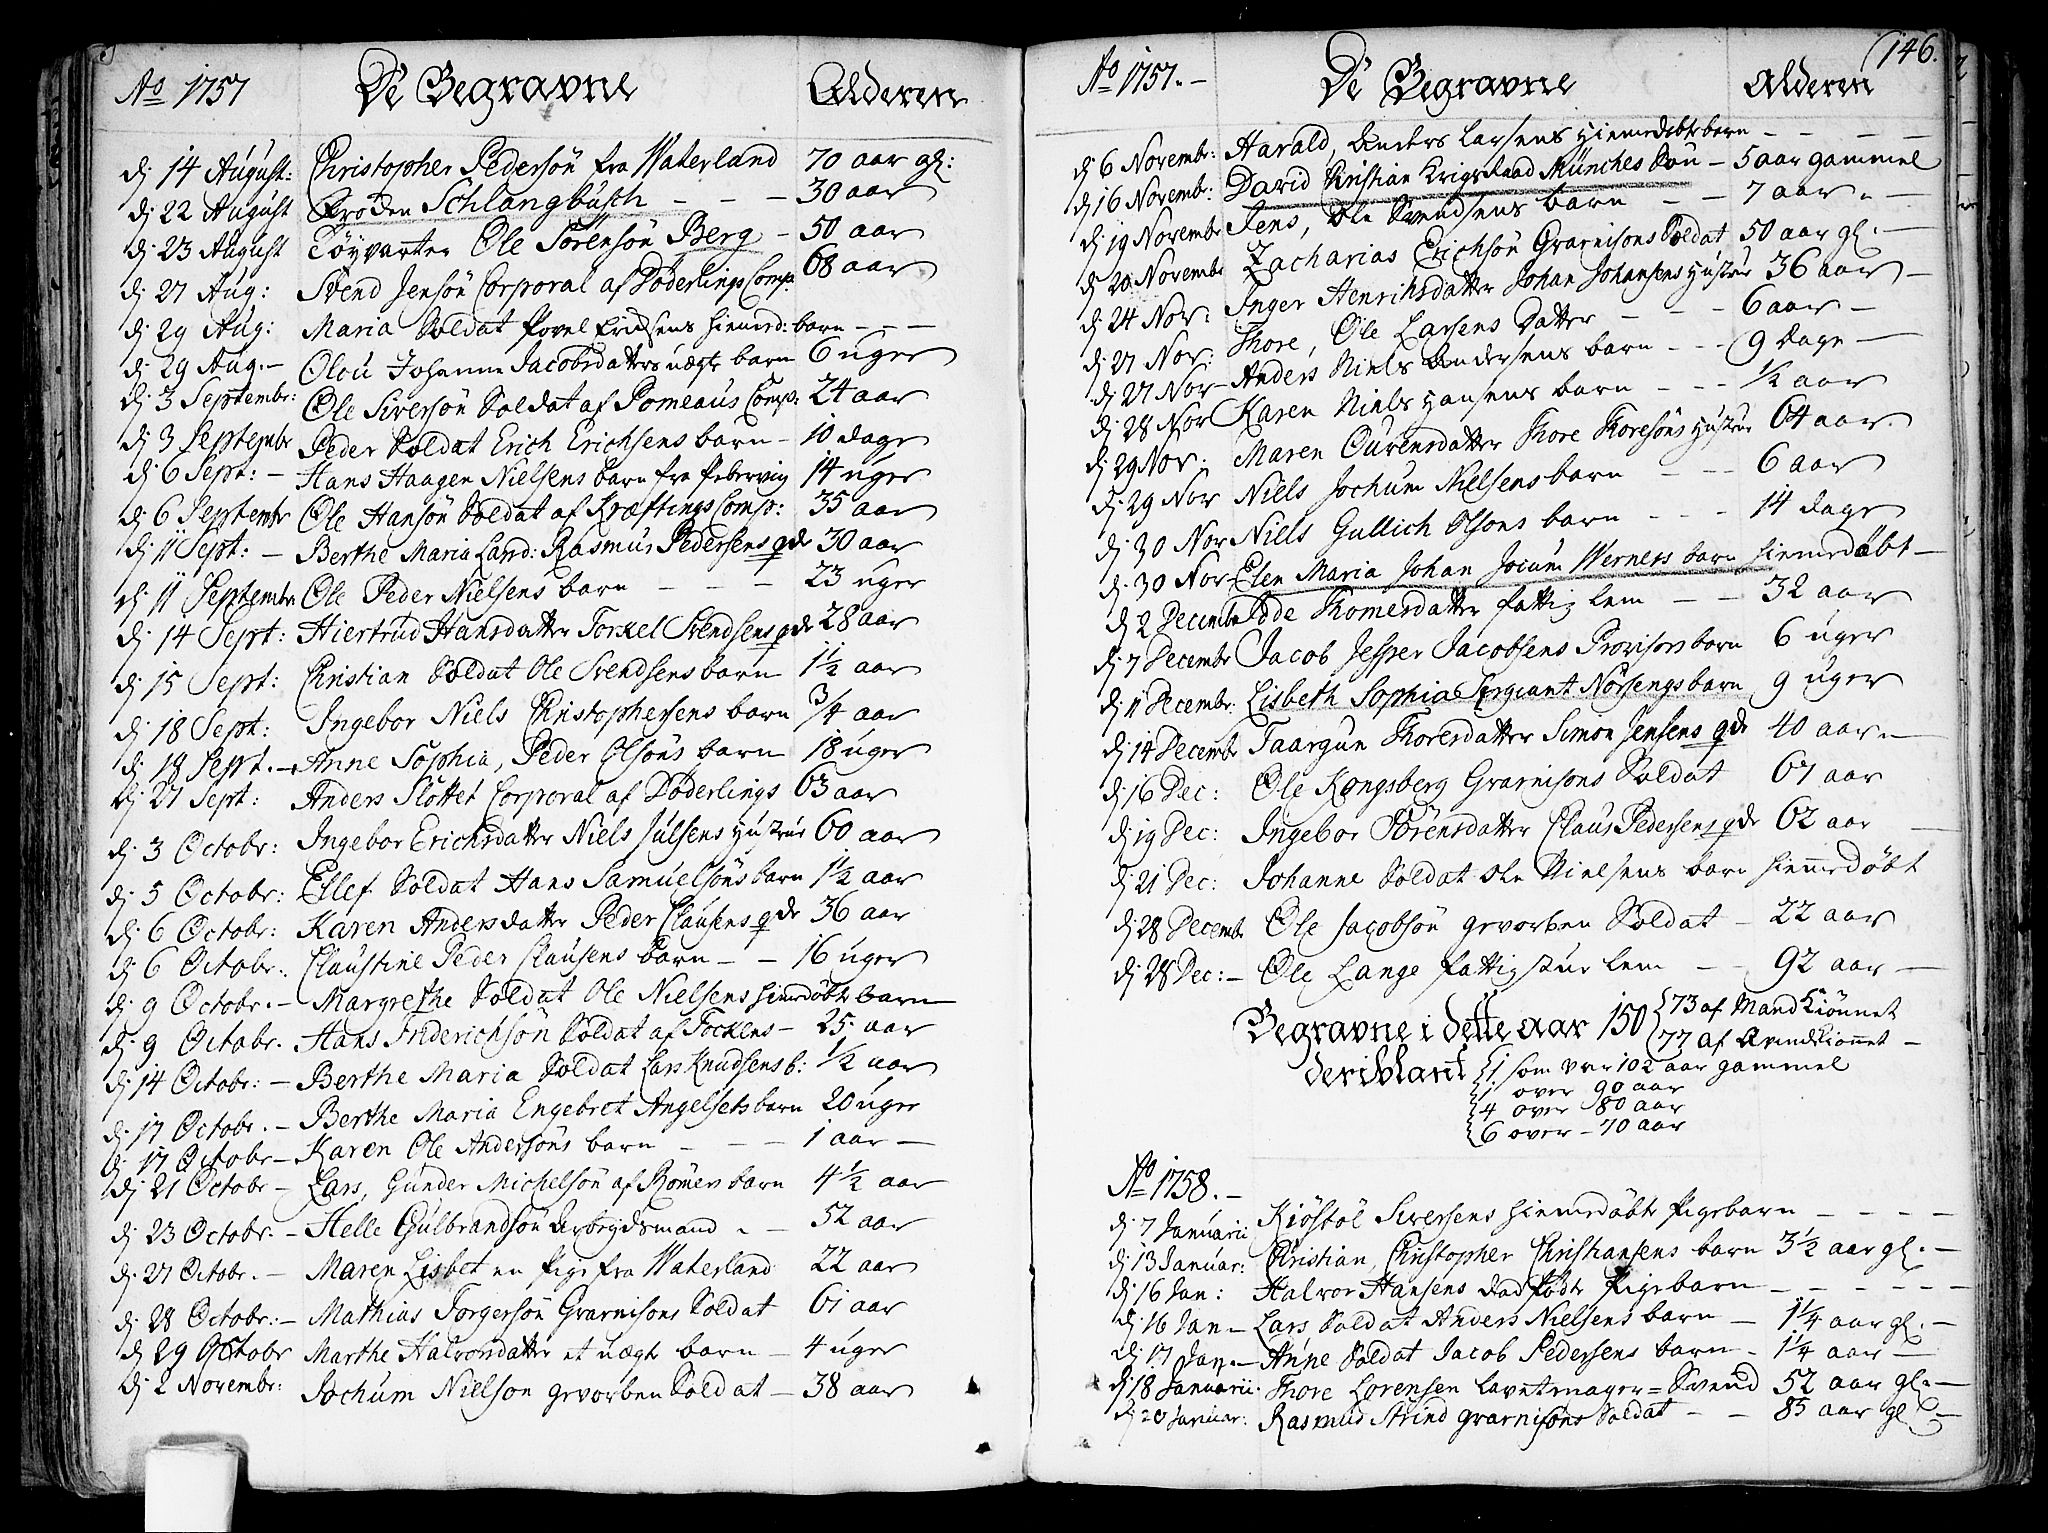 Ao 1757 De Begravne Alderen
d. 14 August: Christopher Pedersön fra Waterland 70 aar gl:
d. 22 August Frøden Schlangbusch - - - 30 aar
d. 23 August Töyvarter Ole Sörensön Berg - 50 aar
d. 27 Aug: Svend Jensön Corporal af Döderlings Comp: 68 aar
d. 29 Aug: Maria Soldat Povel Erichsens hiemed: barn - - -
d. 29 Aug. - Olou Johanne Jacobsdatters uægte barn 6 uger
d. 3 Septembr: Ole Siversön Soldat af Pomeaus Comp: 24 aar
d. 3 Septembr Peder Soldat Erich Erichsens barn - 10 dage
d. 6 Sept: - Hans Haagen Nielsens barn fra Pebervig 14 uger
d. 6 Septembr Ole Hansön Soldat af Kræftings Comp: 35 aar
d. 11 Sept: - Berthe Maria Land: Rasmus Pedersens qde 30 aar
d. 11 Septembr Ole Peder Nielsens barn - - - 23 uger
d. 14 Sept: Hiertrud Hansdatter Torkel Svendsens qde 28 aar
d. 15 Sept: Christian Soldat Ole Svendsens barn 1½ aar
d. 18 Sept: Ingebor Niels Christophersens barn ¾ aar
d. 18 Sept. - Anne Sophia, Peder Olsöns barn 18 uger
d. 27 Sept: Anders Slottet Corporal af Döderlings 63 aar
d. 3 Octobr: Ingebor Erichsdatter Niels Julsens Hustrue 60 aar
d. 5 Octobr: Ellef Soldat Hans Samuelsöns barn 1½ aar
d. 6 Octobr: Karen Andersdatter Peder Clausens qde 36 aar
d. 6 Octobr. Claustine Peder Clausens Barn - - 16 uger
d. 9 Octobr. - Margrethe Soldat Ole Nielsens hiemdöbte barn
d. 9 Octobr. Hans Friderichsön Soldat af Fockens - 25 aar
d. 14 Octobr: - Berthe Maria Soldat Lars Knudsens b: ½ aar
d. 17 Octobr. - Berthe Maria Engebret Angelsets barn 20 uger
d. 17 Octobr - Karen Ole Andersöns barn - - - 1 aar -
d. 21 Octobr - Lars, Gunder Michelsön af Romen barn 4½ aar
d. 23 Octobr. - Helle Gulbrandsön Arbeydsmand - - 52 aar
d. 27 Octobr. - Maren Lisbet en Pige fra Waterland 22 aar
d. 28 Octobr. - Mathias Torgersön Grarnisons Soldat 61 aar
d. 29 Octobr Marthe Halvorsdatter et uægte barn - 4 uger
d. 2 Novembr: Jochum Nielson gevorben Soldat - 38 aar
146.
Ao 1757. - De Begravne Alderen
d. 6 Novembr: Harald, Anders Larsens Hiemedöbte barn - - - -
d. 16 Novembr: David Christian Krigsraad Münches Sön - 5 aar gammel
d. 19 Novembr Jens, Ole Svendsens barn - - 7 aar -
d. 20 Novembr Zacharias Erichsön Grarnisons Soldat 50 aar gl. -
d. 24 Nov: Inger Henrichsdatter Johan Johansens Hustrue 36 aar -
d. 27 Nov: Thore, Ole Larsens Datter - - - 6 aar -
d. 27 Nov - Anders Niels Andersens barn - - - 9 Dage -
d. 28 Nov Karen Niels Hansens barn - - - ½ aar
d. 29 Nov. Maren Ourensdatter Thore Thoresöns Hustrue 64 aar.
d. 29 Nov Niels Jochum Nielsens barn - - - 6 aar
d. 30 Nov Niels Gullich Olsons barn - - - 14 dage
d. 30 Nov - Elen Maria Johan Jocum Werners barn hiemedøbt -
d. 2 Decembr Adde Thomesdatter fattig lem - - 32 aar
d. 7 Decembr Jacob Jesper Jacobsens Provisors barn 6 uger
d. 11 Decembr: Lisbeth Sophia Sergeant Nörsengs barn 9 uger
d. 14 Decembr Taargun Thoresdatter Simon Jensens qde 40 aar -
d. 16 Dec: Ole Kongsberg Grarnisons Soldat 67 aar
d. 19 Dec: Ingebor Sörensdatter Claus Pedersens qde 62 aar
d. 21 Dec: Johanne Soldat Ole Nielsens barn hiemedøbt
d. 28 Decembr Ole Jacobsön gevorben Soldat - 22 aar
d. 28 Dec: - Ole Lange fattig stue lem - 92 aar -
Begravne i dette aar 150 { 73 af Mand Kiönnet
77 af Qvindkiönnet -
deriblant { 1 som var 102 aar gammel
1 over 90 aar
4 over 80 aar
6 over - 70 aar
Ao 1758. -
d. 7 Januarii Kiöstol Siversens hiemedöbte Pigebarn - - - -
d. 13 Januar: Christian, Christopher Christiansens barn 3½ aar gl. -
d. 16 Jan: Halvor Hansens dødfödte Pigebarn - - - - -
d. 16 Jan - Lars Soldat Anders Nielsens barn - 1¼ aar gl. -
d. 17 Jan. - Anne Soldat Jacob Pedersens barn - 1¼ aar -
d. 18 Januarii. Thore Lorensen Lavetmager = Svend 52 aar gl. -
d. 20 Januar: Rasmus Strind grarnisons Soldat - - 85 aar gl -